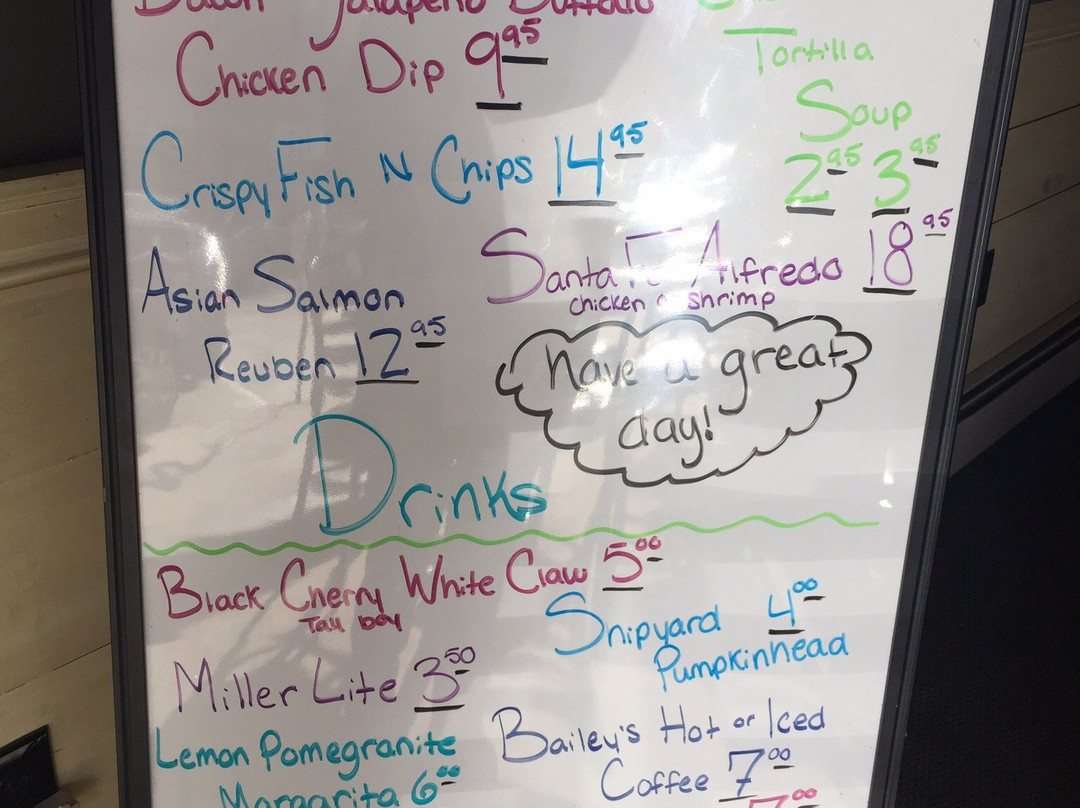 Bacon Jalapeno Buffalo
Chicken Dip 9.95
Tortilla
Soup
2.95 3.95
Crispy Fish N Chips 14.95
Asian Salmon
Reuben 12.95
Santa Fe Alfredo 18.95
chicken or shrimp
have a great
day!
Drinks
Black Cherry White Claw 5.00
Tall boy
Shipyard 4.00
Pumpkinhead
Miller Lite 3.50
Lemon Pomegranite
Margarita 6.00
Bailey's Hot or Iced
Coffee 7.00
7.00